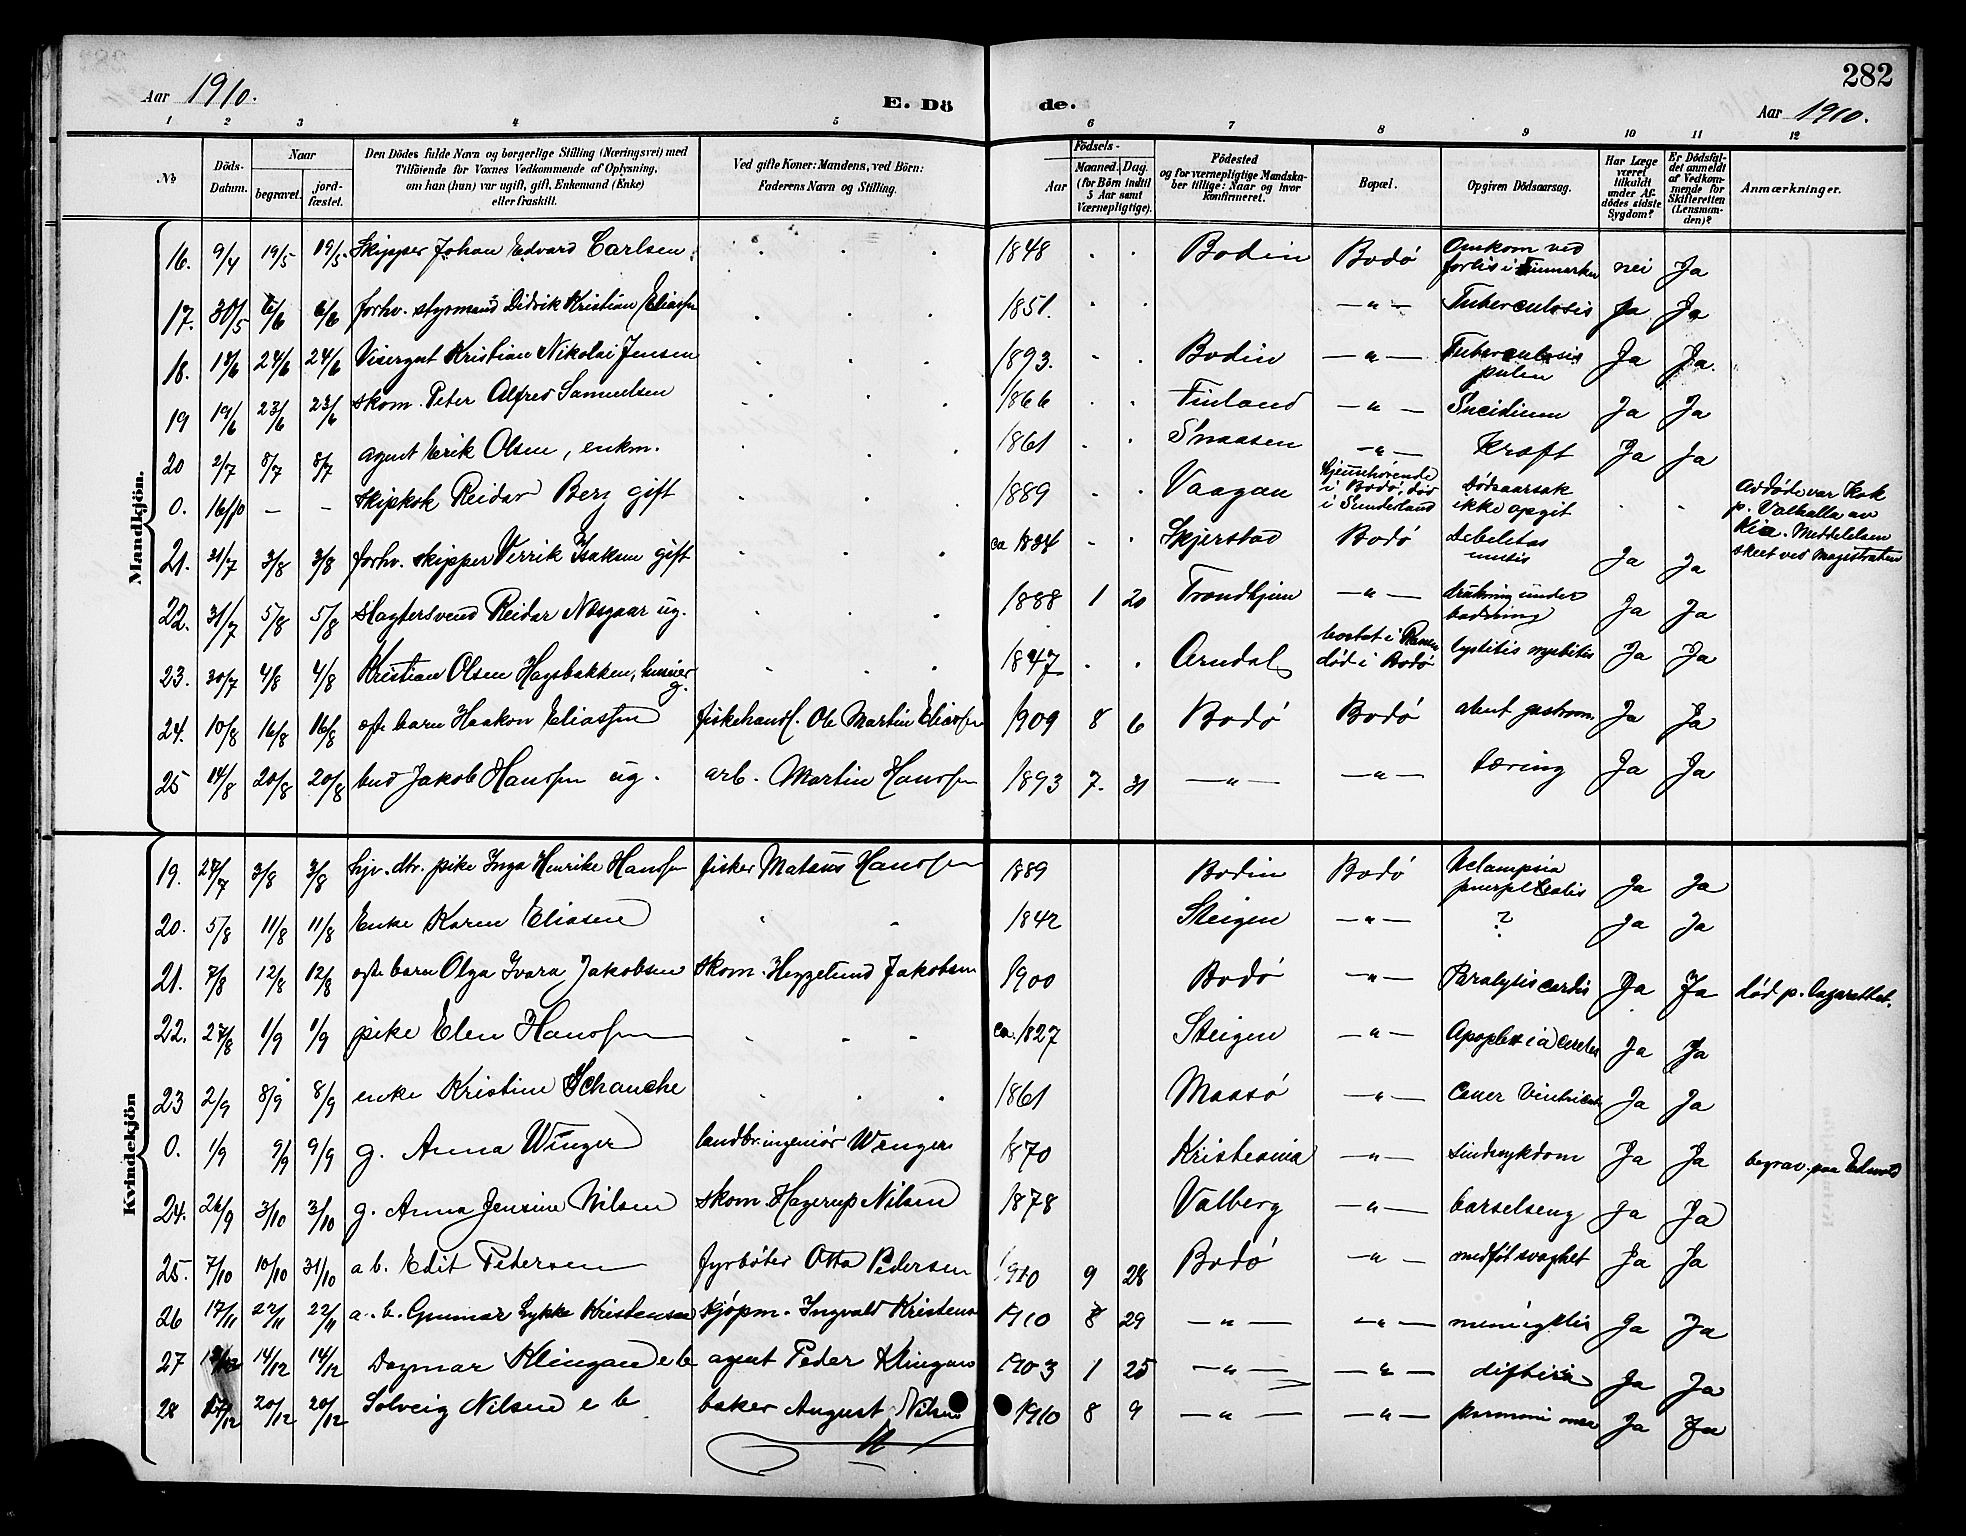 282
Aar 1910.
E. Dö de.
Aar 1910.
1 2 3 4 5 6 7 8 9 10 11 12
No
Döds-Datum.
Naar
begravet.
jord-fæstet.
Den Dödes fulde Navn og borgerlige Stilling (Næringsvei) med
Tilföiende for Voxnes Vedkommende af Oplysning,
om han (hun) var ugift, gift, Enkemand (Enke)
eller fraskilt.
Ved gifte Koner: Mandens, ved Börn:
Faderens Navn og Stilling.
Födsels-
Aar
Maaned. Dag.
(for Börn indtil
5 Aar samt
Værnepligtige).
Födested
og for værnepligtige Mandska-
ber tillige: Naar og hvor
konfirmeret.
Bopæl.
Opgiven Dödsaarsag.
Har Læge
været
tilkaldt
under Af-
dödes sidste
Sygdom?
Er Dödsfal-
det anmeldt
af Vedkom-
mende for
Skifteretten
(Lensman-
den)?
Anmærkninger.
Mandkjön.
16. 9/4 19/5 19/5. Skipper Johan Edvard Carlsen 1848 Bodin Bodó Omkom ved forlis i Finmarken nei Ja
17. 30/5 6/6 6/6 forhv. styrmand Didrik Kristian Eliassen 1851. —"— Tuberculosis Ja Ja
18. 18/6 24/6 24/6 Visergut Kristian Nikolai Jensen 1893. Bodin —"— Tuberculosis pulm Ja Ja.
19 19/6 23/6 23/6 skom. Peter Alfred Samuelsen 1866 Finland —"— Sucidium Ja Ja
20 2/7 8/7 8/7 agent Erik Olsen, enkm. 1861 Snaasen —"— Kræft Ja Ja
0. 16/10 — — skipkok Reidar Berg gift 1889 Vaagan hjemhørende i Bodó, død i Sunderland Dødsaarsak ikke opgit Avdøde var Kok p. Valhalla av Kra. Meddelelsen skeet ved Magistraten
21. 31/7 3/8 3/8 forhv. skipper Verrik Isaksen gift ca 1834 Skjerstad Bodó debeletas Ja Ja
22. 31/7 5/8 5/8 slagtersvend Reidar Næsgaar ug. 1888 1 20 Trondhjem —"— drukning under badning Ja Ja
23. 30/7 4/8 4/8 Kristian Olsen Haysbakken, g. 1847 Arndal bosat i død i Bodó Ja Ja
24. 10/8 16/8 16/8 efte barn Haakon Eliassen fiskehandl. Ole Martin Eliassen 1909 8 6 Bodó Bodó akut gastrom. Ja Ja
25 14/8 20/8 20/8 bud Jakob Hanssen ug. arb. Martin Hanssen 1893 7. 31 —"— —"— tæring Ja Ja
Kvindekjön
19. 27/7 3/8 3/8 hjv. dtr. pike Inga Henrike Hanssen fisker Mataus Hanssen 1889 Bodin Bodó Eclampsia Ja Ja
20. 5/8 11/8 11/8 Enke Karen Eliasen 1842 Steigen —"— ? Ja Ja
21. 7/8 12/8 12/8 efte barn Olga Ivara Jakobsen skom. Heggelund Jakobsen 1900 Bodó —"— Paralytis cordis Ja Ja død p. Lazarettet.
22. 27/8 1/9 1/9 pike Elen Hanssen ca. 1827 Steigen —"— Apoplexia cerebri Ja Ja
23 2/9 8/9 8/9 enke Kristine Schanche 1861 Maasó —"— Cancer Ventriculi Ja Ja
0. 1/9 9/9 9/9 g. Anna Winger landbr.ingeniør Wenger 1870 Kristiania —"— Sindssykdom Ja Ja begrav. paa
24. 26/9 3/10 3/10 g. Anna Jensine Nilsen skom. Hagerup Nilsen 1878 Valberg —"— barselseng Ja Ja
25. 7/10 10/10 31/10 a b. Edit Pedersen fyrbøter Otto Pedersen 1910 9 28 Bodó —"— medføt svaghet Ja Ja
26 17/11 22/11 22/11 a. b. Gunnar Lykke Kristensen kjøpm. Ingvald Kristensen 1910 8 29 —"— —"— meningitis Ja Ja
27 /12 14/12 14/12 Dagmar Klingan e b agent Peder Klingan 1903 1 25 —"— —"— difteri Ja Ja
28 17/12 20/12 20/12 Solveig Nilsen e b baker August Nilsen 1910 8 9 —"— —"— Ja Ja